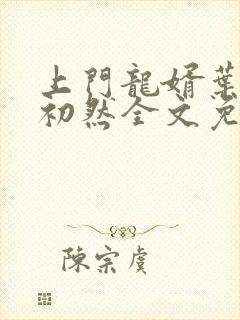 上門龍婿葉
初然全文免
陳宗虞